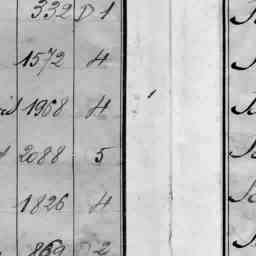 332 D 1
1572 4
1968 4
2088 5
1826 4
869 2